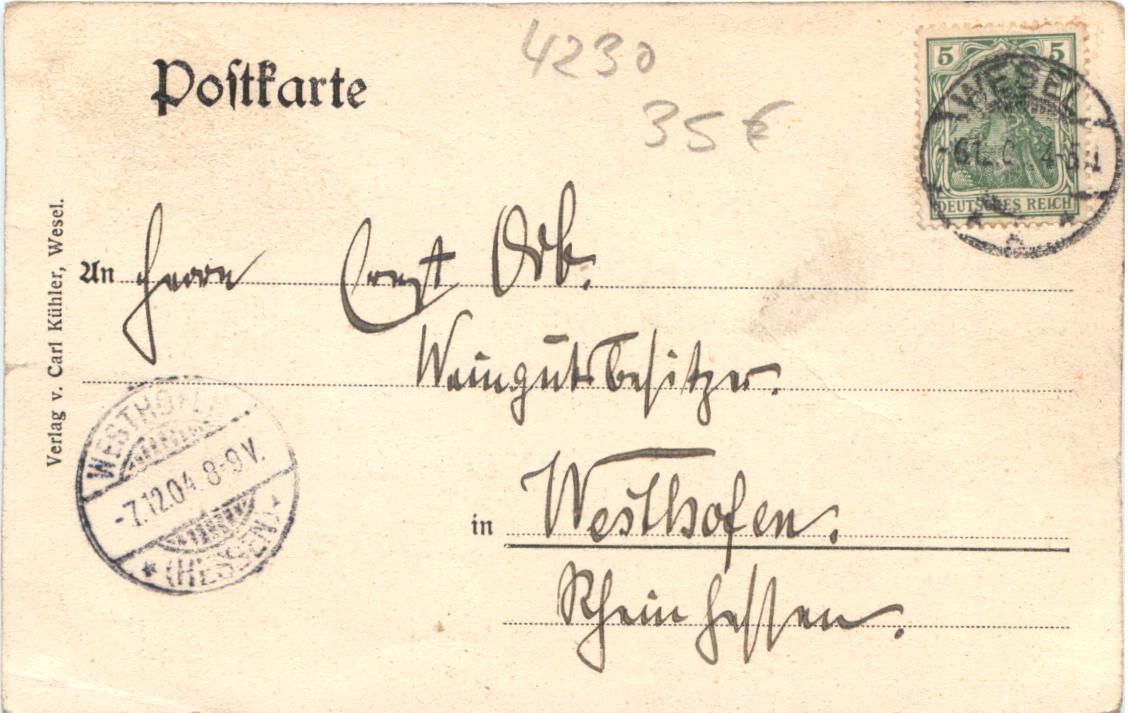 4230
Postkarte
35 €
5 5
DEUTSCHES REICH
WESEL
4-5 N
Verlag v. Carl Kühler, Wesel.
An Herrn Ernst Orb.
Weingutsbesitzer.
WESTHOFEN
-7.12.04. 8-9 V.
(HESSEN)
in Westhofen.
Rheinhessen.